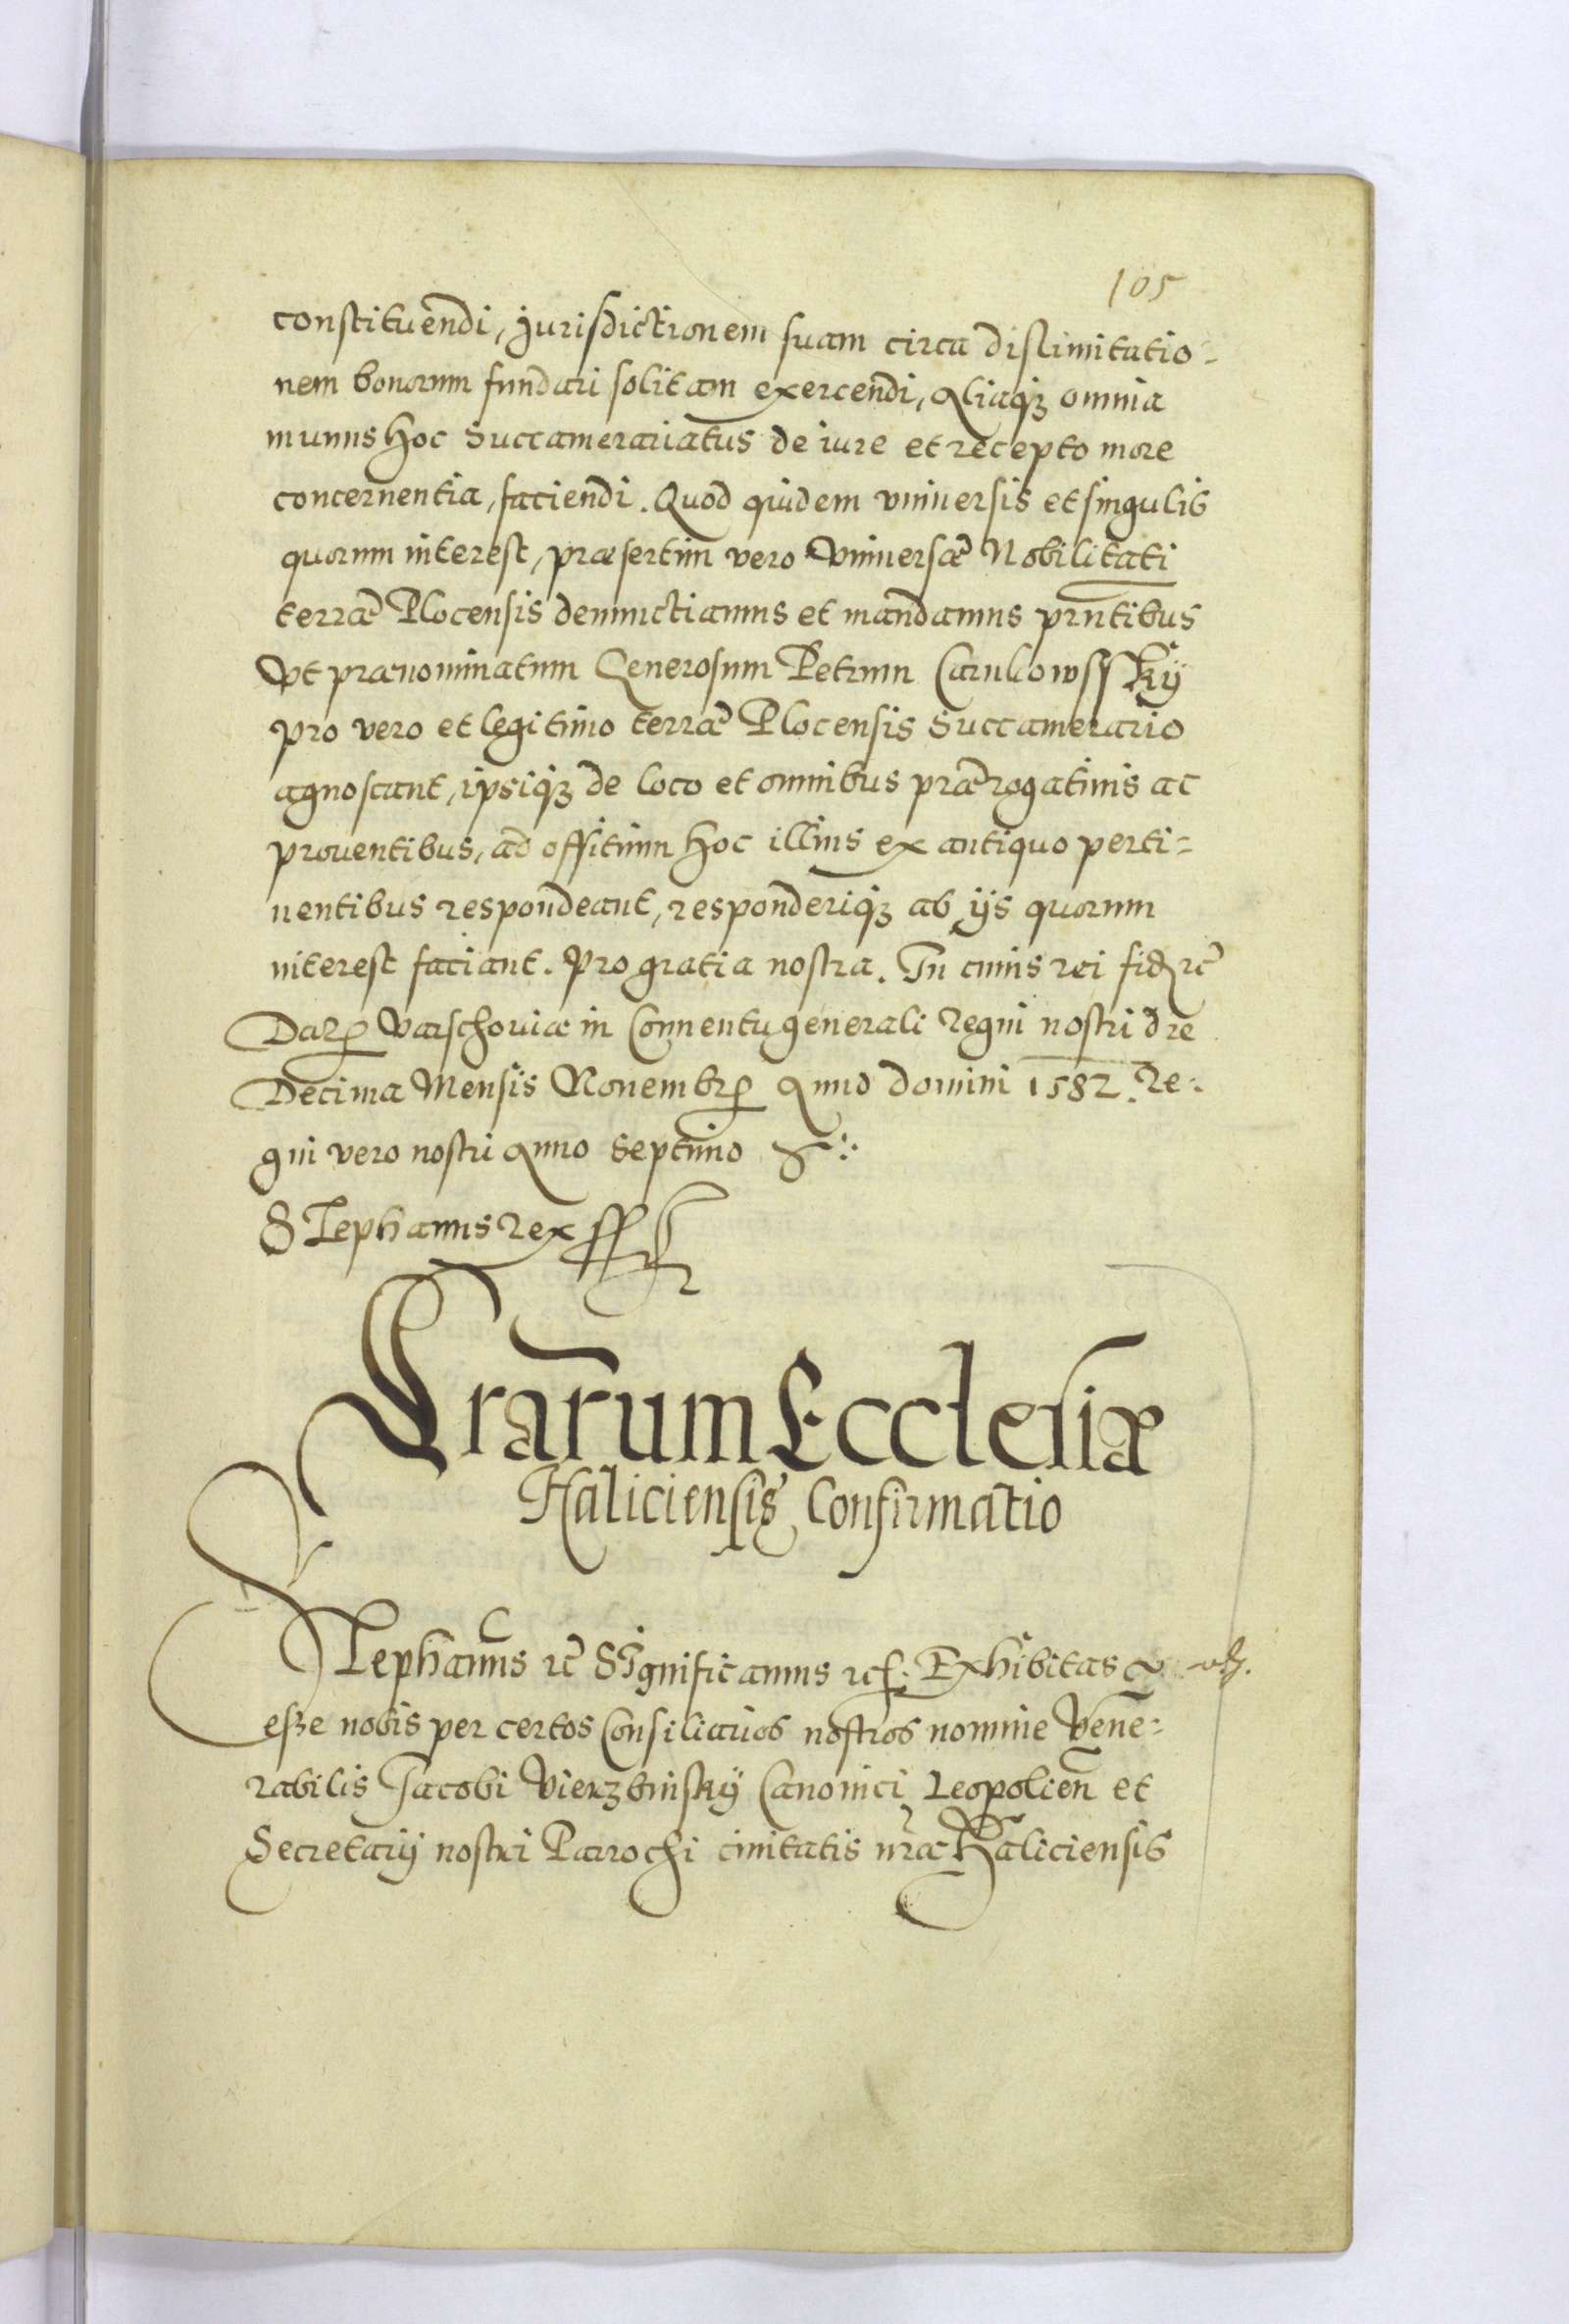 105
constituendi, jurisdictionem suam circa dislimitatio=
nem bonorum fundari solitam exercendi, Aliaqȝ omnia
munus hoc Succamerariatus de iure et recepto more
concernentia, faciendi. Quod quidem vniuersis et singulis
quorum interest, præsertim vero Vniuersæ Nobilitati
terræ Plocensis denunctiamus et mandamus prñtibus
Vt prænominatum Generosum Petrum Carnkowsskÿ
pro vero et legitimo terræ Plocensis Succamerario
agnoscant, ipsiqȝ de loco et omnibus prærogatiuis ac
prouentibus, ad offitium hoc illius ex antiquo perti=
nentibus respondeant, responderiqȝ ab ijs quorum
interest faciant. Pro gratia nostra. In cuius rei fidȝ rc̃
Datȝ Varschouiæ in Conuentu generali Regni nostri die
Decima Mensis Nouembrȝ Anno Domini 1582. Re=
gni vero nostri Anno Septimo
Stephanus Rex
Lrarum Ecclesiæ
Haliciensis Confirmatio
Stephanus rc̃ Significamus rc. Exhibitas
esse nobis per certos Consiliarios nostros nomine Vene=
rabilis Jacobi Vierzbinskÿ Canonici Leopolieñ et
Secretarij nostri Parrochi ciuitatis nr̃æ Haliciensis